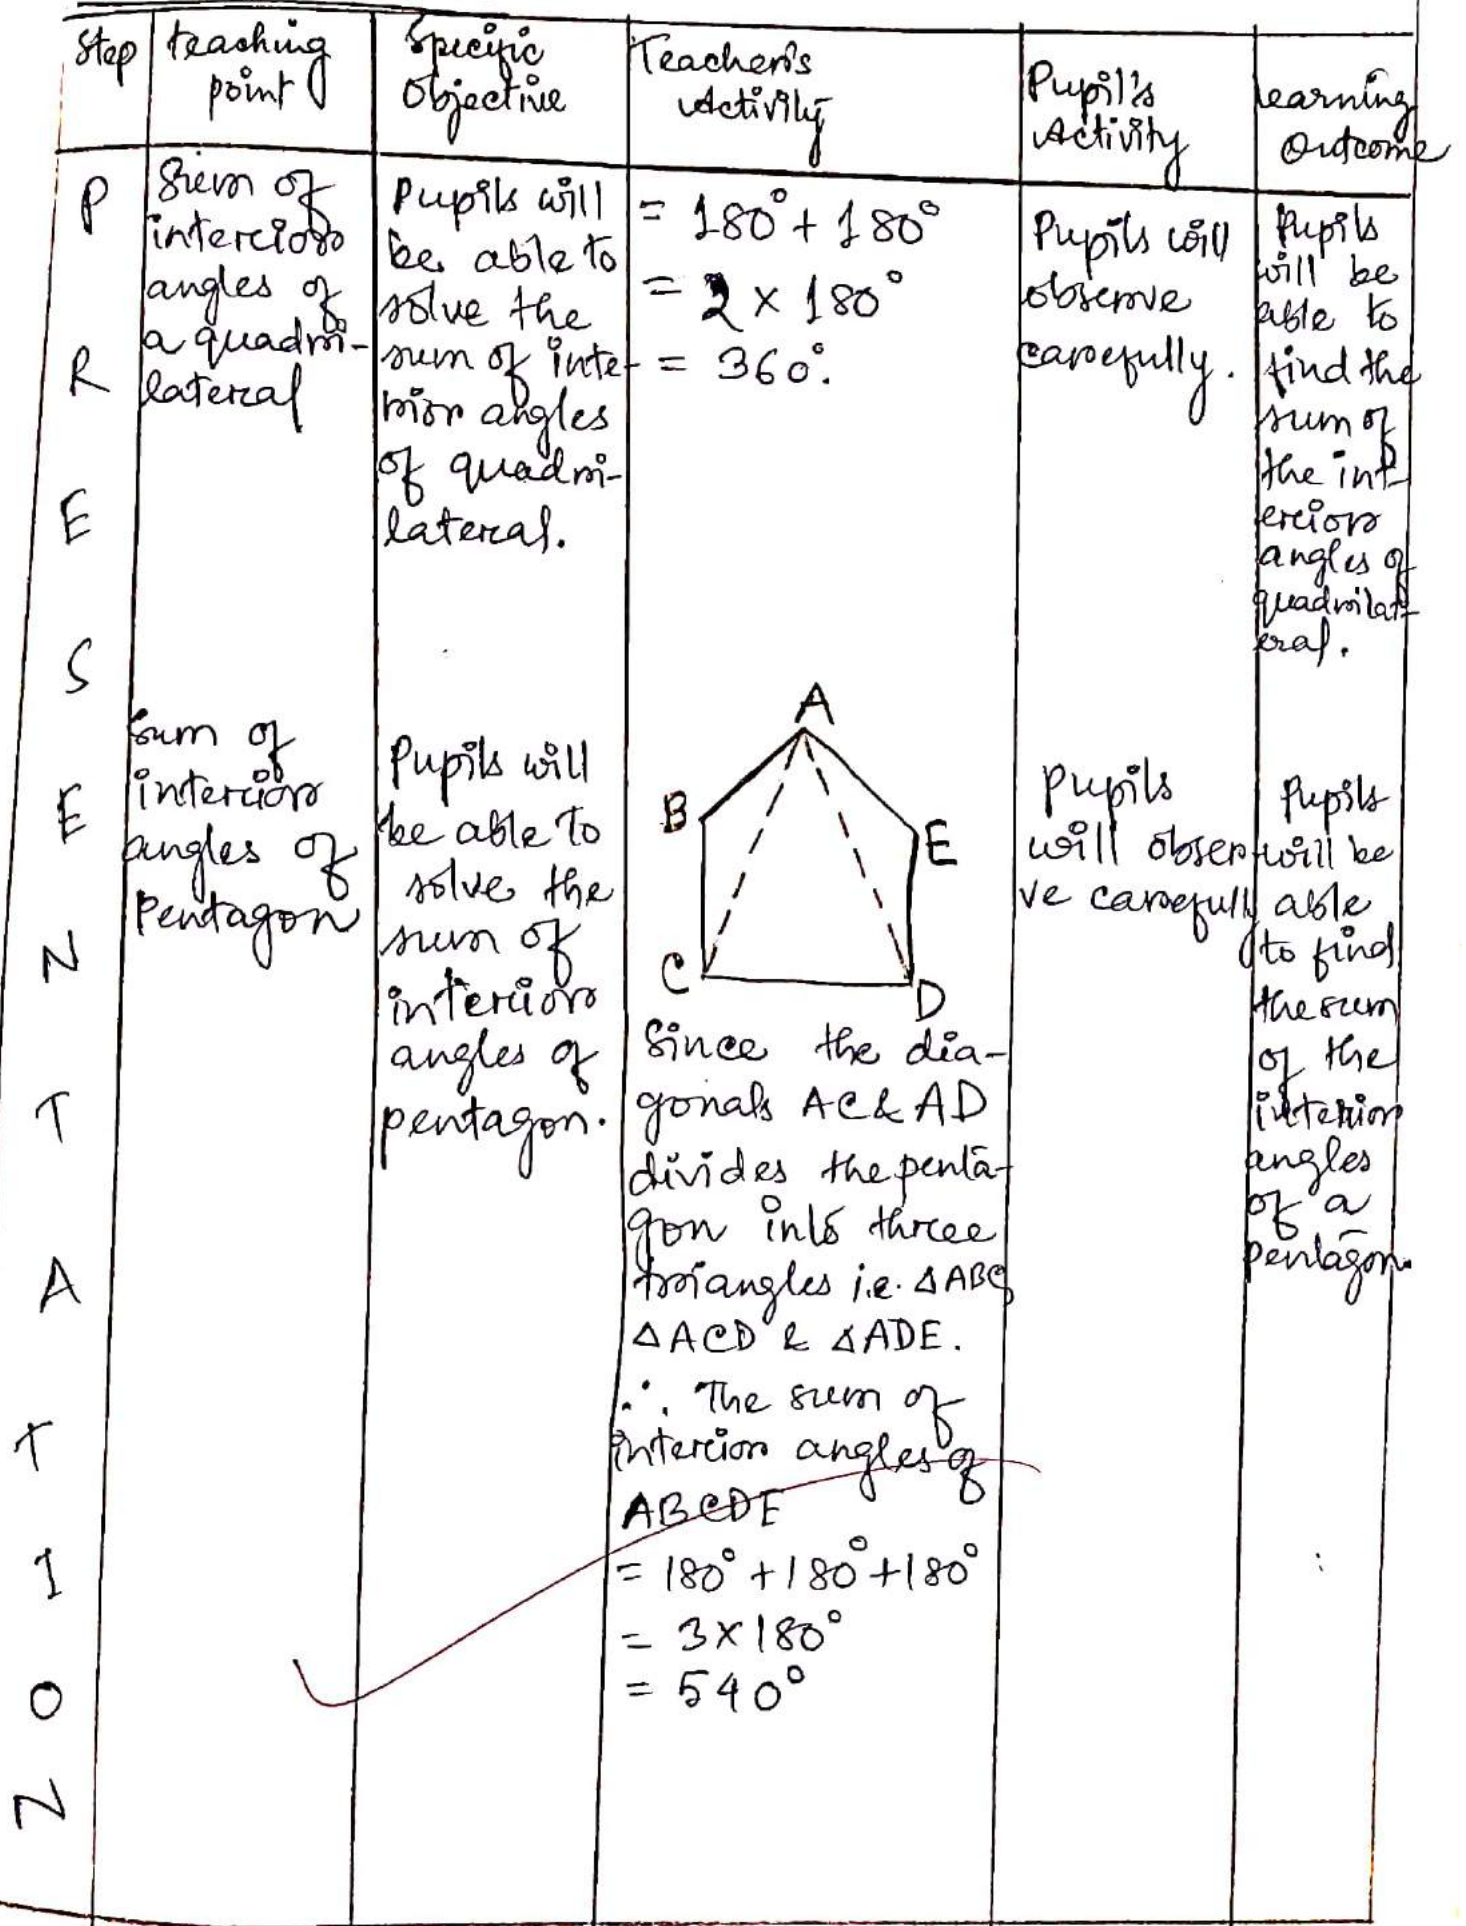 Step
teaching
point
Specific
Objective
Teacher's
Activity
Pupil's
Activity
Learning
Outcome
P
R
E
S
E
N
T
A
T
I
O
N
Sum of
interior
angles of
a quadri-
lateral
Pupils will
be able to
solve the
sum of inte-
rior angles
of quadri-
lateral.
= 180° + 180°
= 2 × 180°
= 360°.
Pupils will
observe
carefully.
Pupils
will be
able to
find the
sum of
the int-
erior
angles of
quadrilat-
eral.
Sum of
interior
angles of
Pentagon
Pupils will
be able to
solve the
sum of
interior
angles of
pentagon.
A
B
E
C
D
Since the dia-
gonals AC & AD
divides the penta-
gon into three
triangles i.e. ΔABC,
ΔACD & ΔADE.
∴ The sum of
interior angles of
ABCDE
= 180° + 180° + 180°
= 3 × 180°
= 540°
Pupils
will obser
ve carefully
Pupils
will be
able
to find
the sum
of the
interior
angles
of a
pentagon.